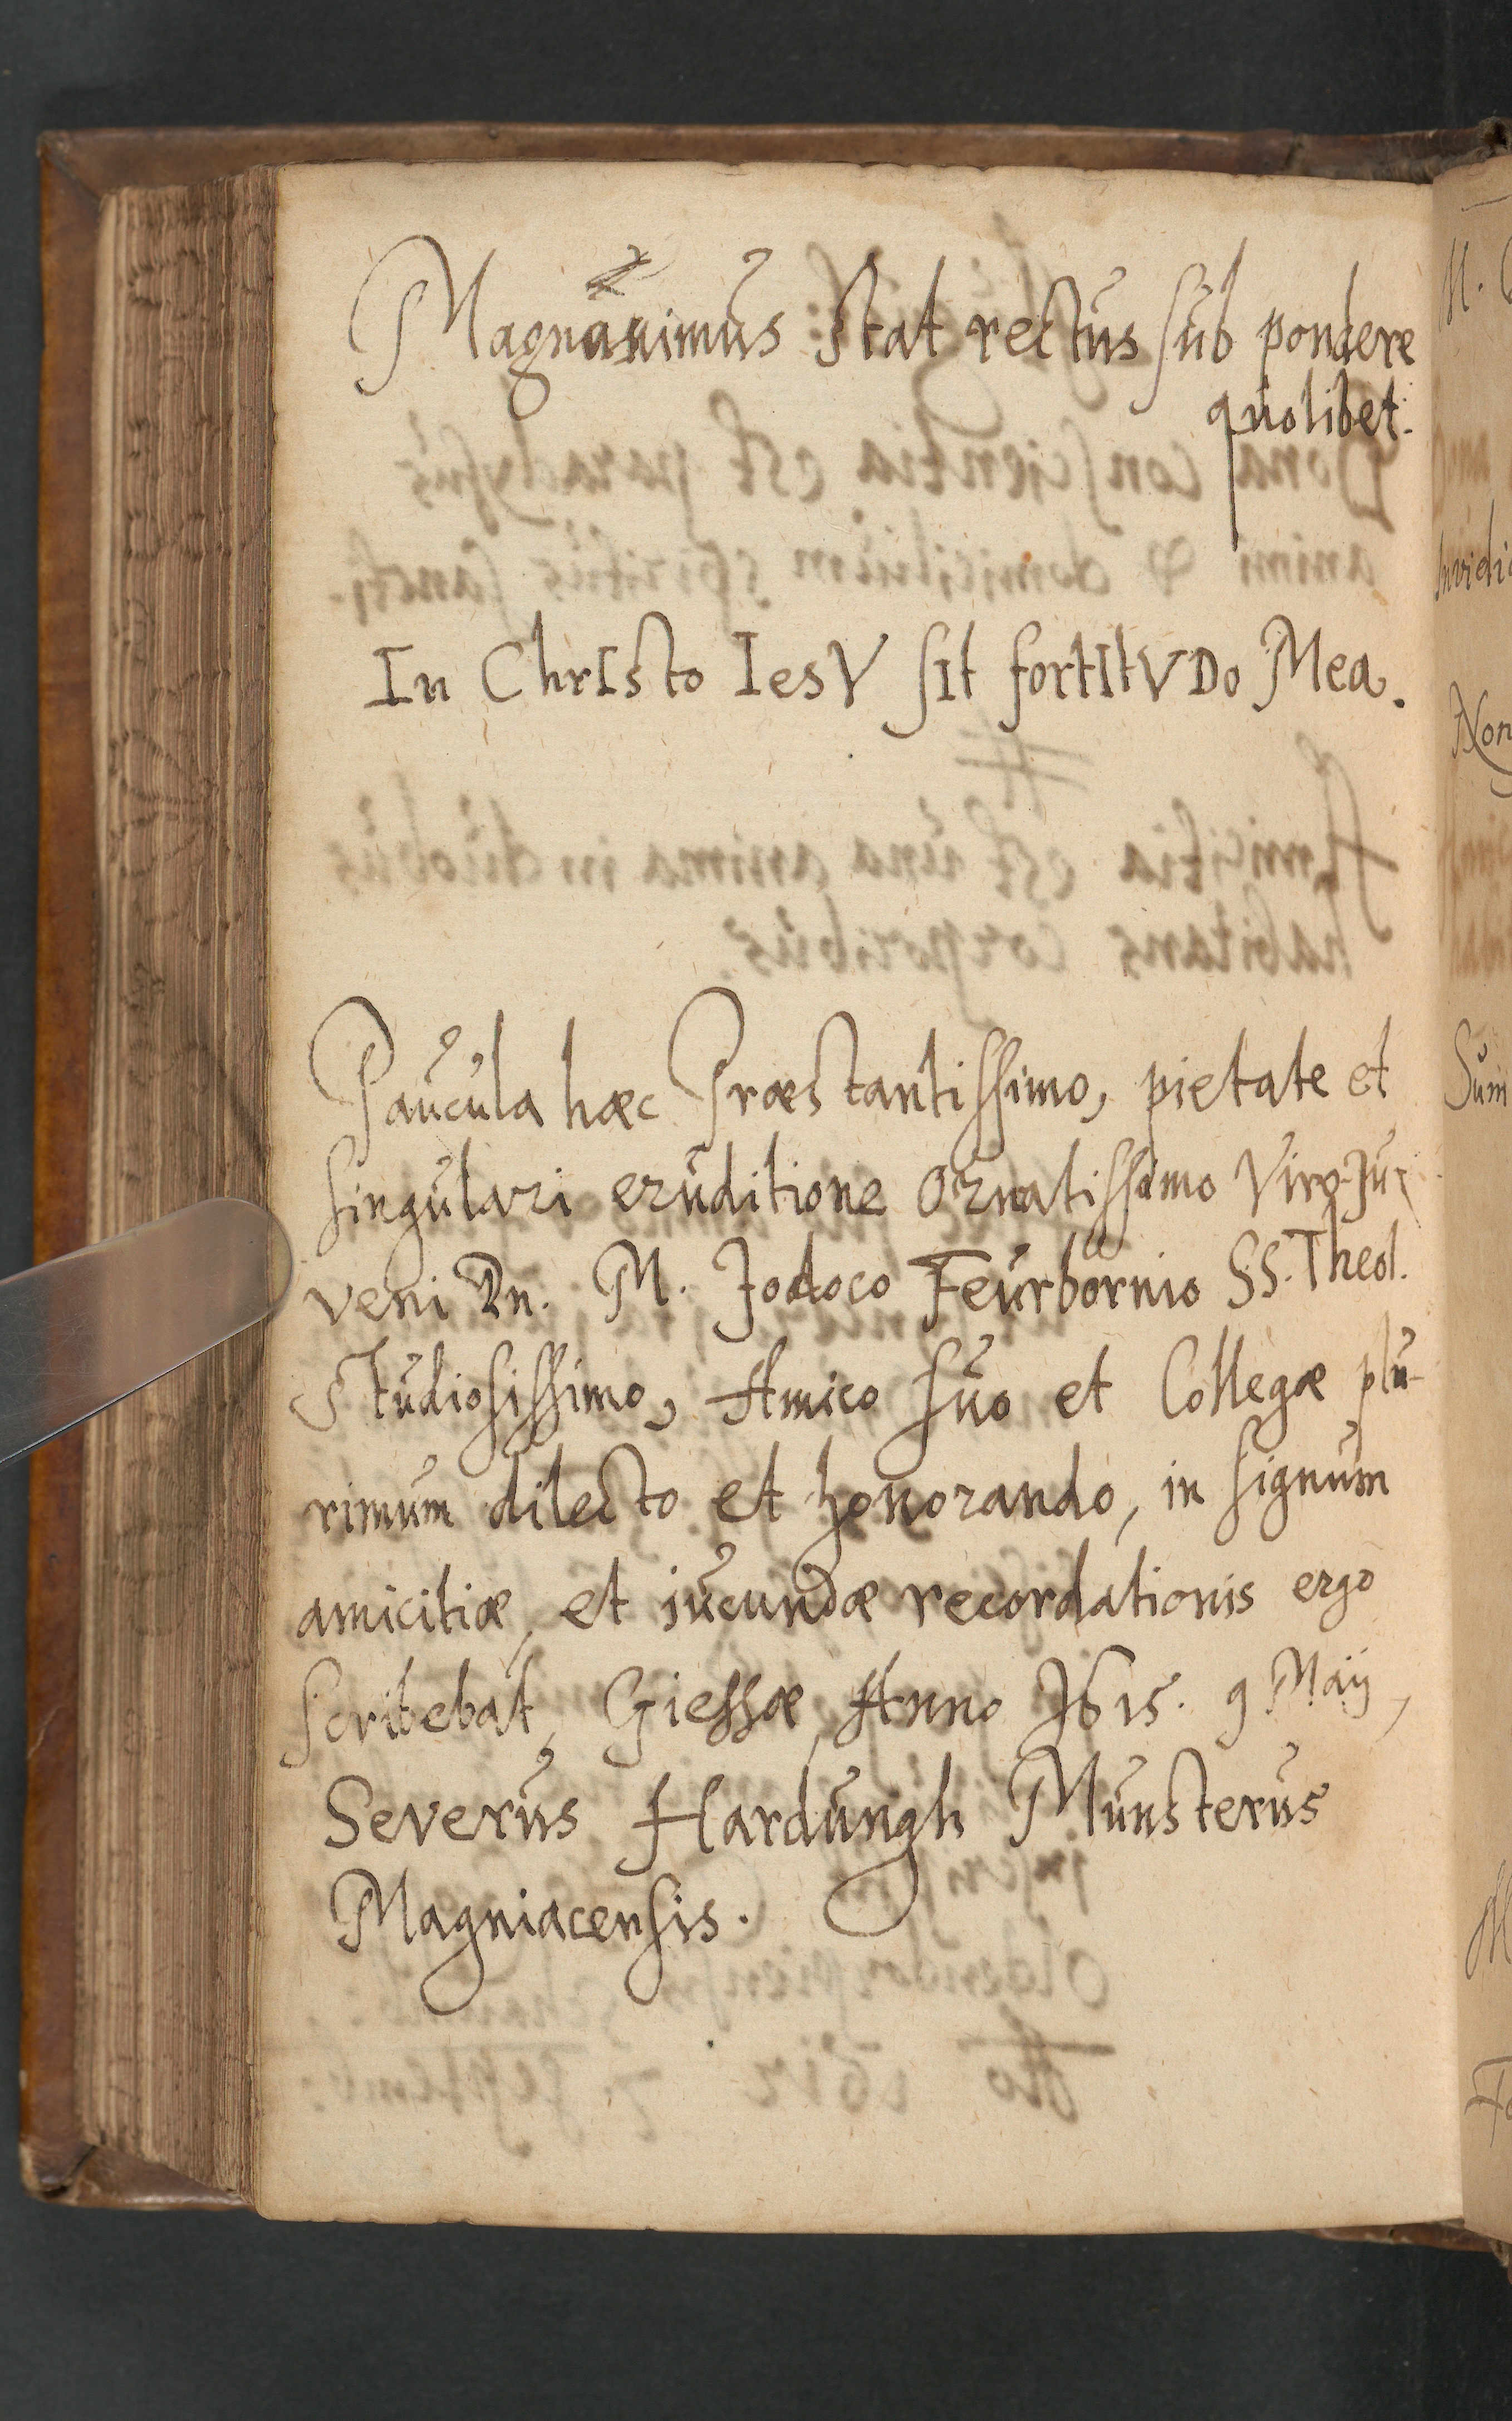 Magnanimus stat rectus sub pondere
quolibet.
In ChrIsto IesV sIt fortItVDo Mea.
Paucula hæc Præstantissimo, pietate et
singulari eruditione ornatissimo Viro-Ju-
veni Dn. M. Jodoco Feurbornio SS. Theol.
Studiosissimo, Amico suo et Collegæ plu-
rimum dilecto et honorando, in signum
amicitiæ, et iucundæ recordationis ergo
scribebat, Giessæ, Anno 1615. 9 Maij,
Severus Hardungh Munsterus
Magniacensis.